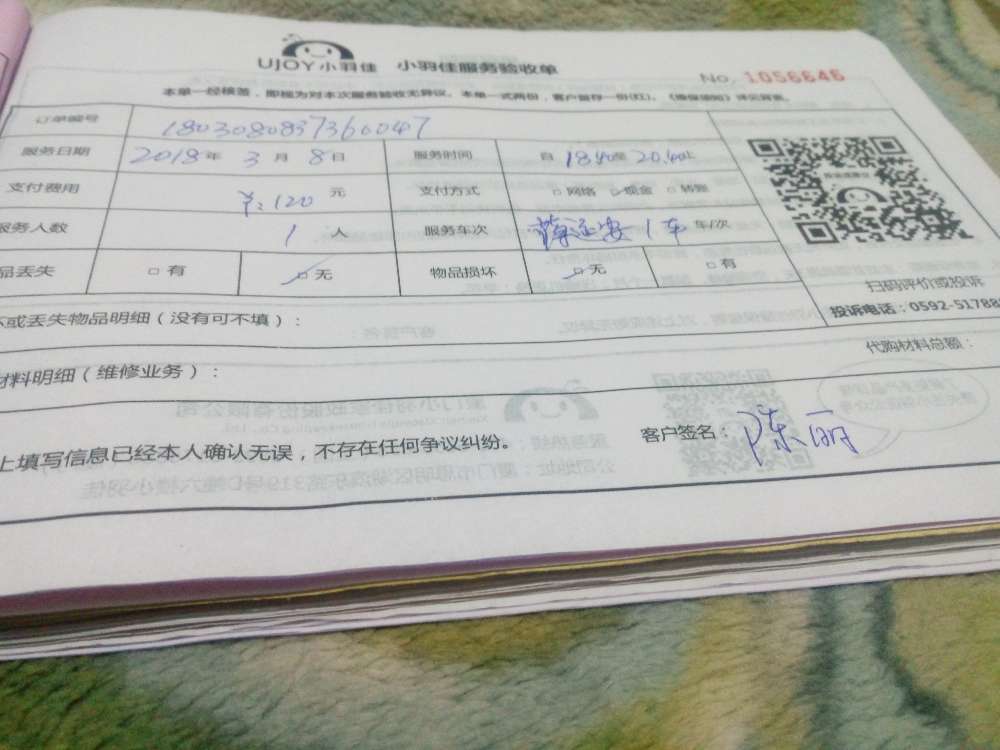 UJOY小羽佳 小羽佳服务验收单
No. 1056646
本单一经核签，即视为对本次服务验收无异议。本单一式两份，客户留存一份(红)。《维保须知》详见背面。
订单编号 18030808373660047
服务日期 2018年 3月 8日 服务时间 自 18:40至 20:40止
支付费用 ¥:120 元 支付方式 □网络 ☑现金 □转账
服务人数 1 人 服务车次 1车 车/次
品丢失 □有 ☑无 物品损坏 ☑无 □有
扫码评价或投诉
投诉电话：0592-51788
坏或丢失物品明细（没有可不填）：
代购材料总额：
材料明细（维修业务）：
上填写信息已经本人确认无误，不存在任何争议纠纷。 客户签名：陈丽